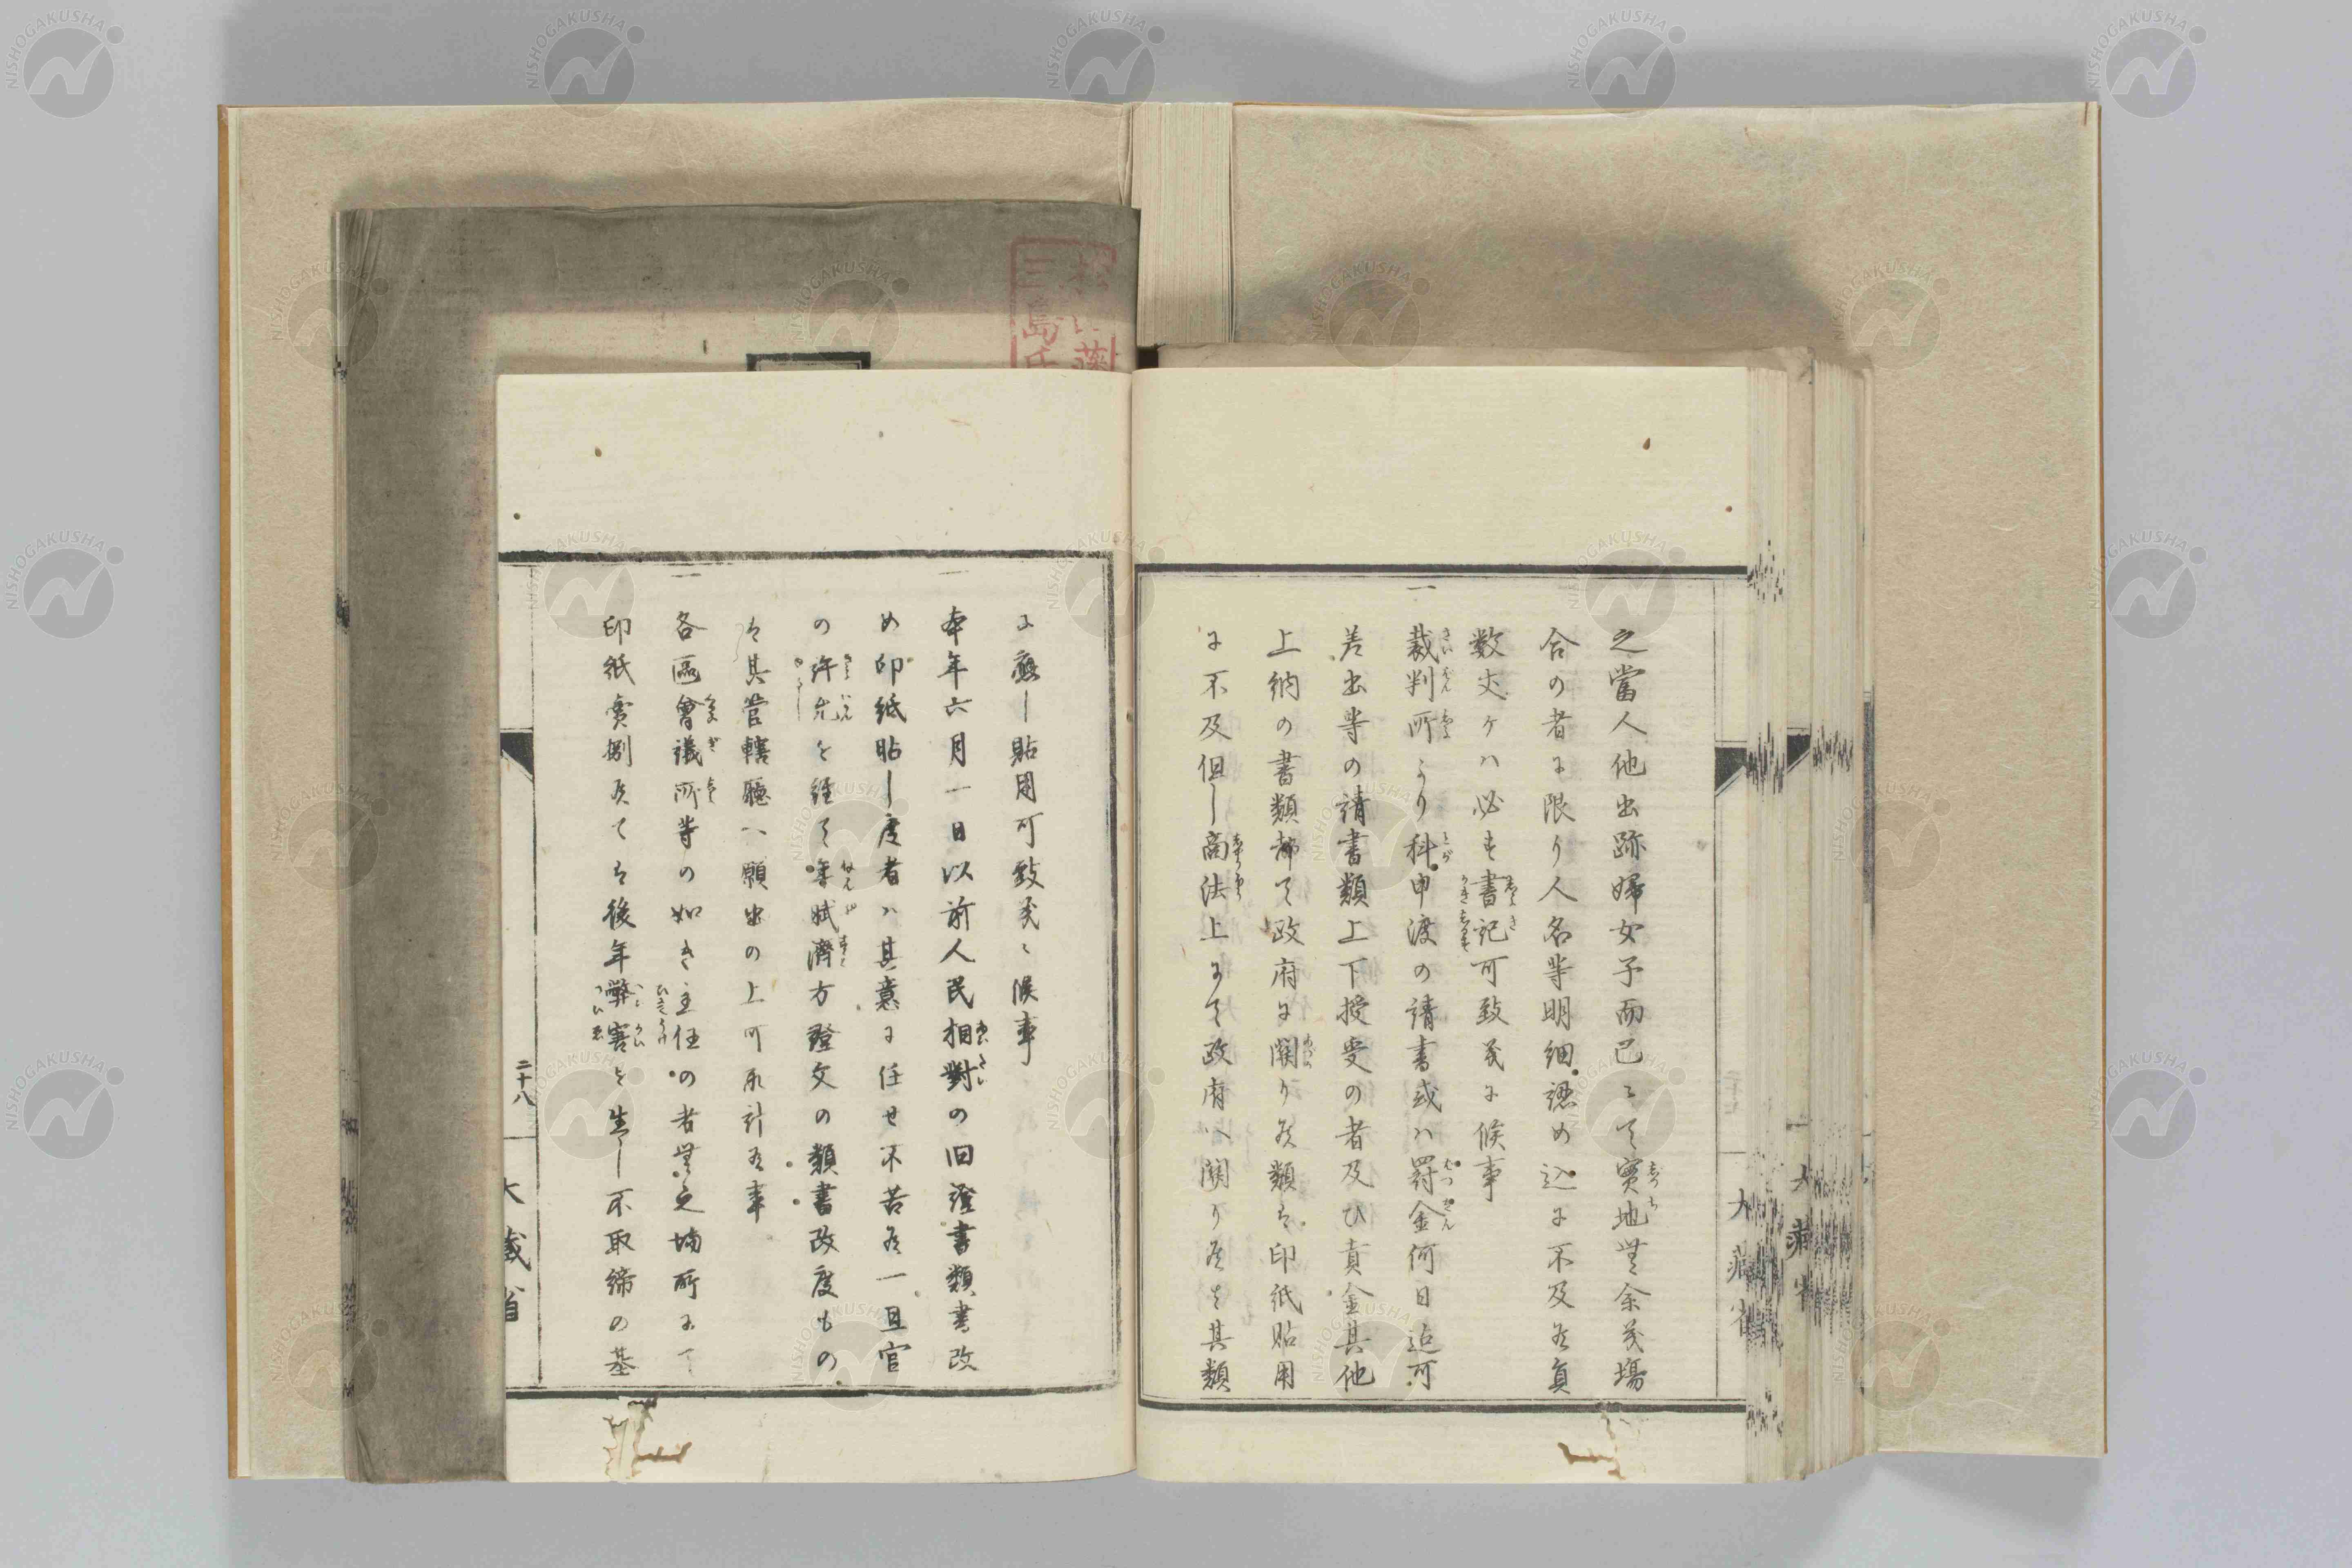 之當人他出跡婦女子而已ニて實地無余義場
合の者に限り人名等明細認め込に不及候員
数丈ケハ必も書記可致義に候事
一
裁判所より科申渡の請書或ハ罸金何日迠可
差出等の請書類上下授受の者及ひ責金其他
上納の書類都て政府に關り候類は印紙貼用
に不及但し商法上にて政府へ關り候は其類
に應し貼用可致義ニ候事
一
本年六月一日以前人民相對の旧證書類書改
め印紙貼し度者ハ其意に任せ不苦候一旦官
の許允を經て年賦濟方證文の類書改度もの
は其管轄廳へ願出の上可取計候事
一
各區會議所等の如き主任の者無之場所にて
印紙賣捌候ては後年弊害を生し不取締の基
二十八
大藏省
大藏省
三島氏
NISHOGAKUSHA